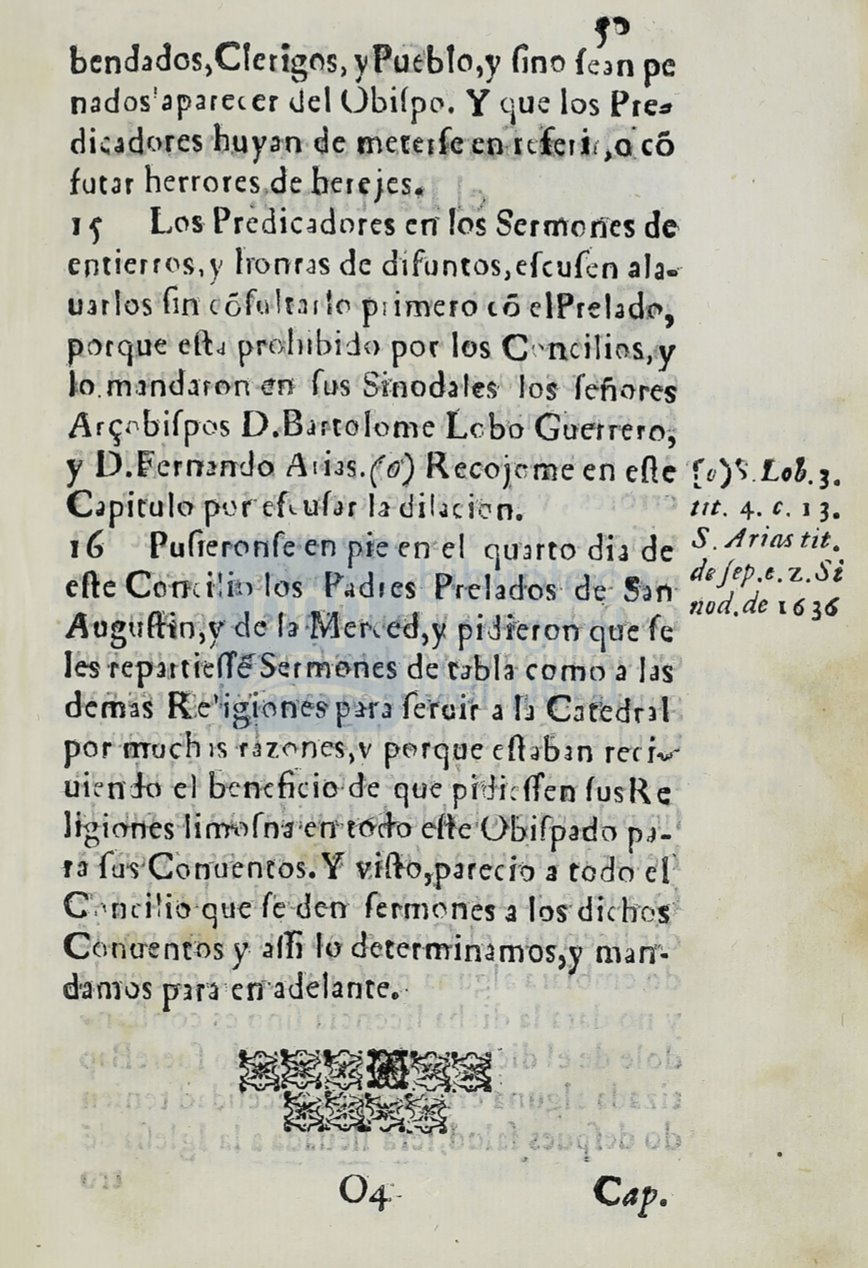 50
bendados, Clerigos, y Pueblo, y ſino ſean pe
nados aparecer del Obiſpo. Y que los Pre-
dicadores huyan de meterſe en referir, o cõ
futar herrores de herejes.
15 Los Predicadores en los Sermones de
entierros, y honras de difuntos, eſcuſen ala-
uarlos ſin cõſultarlo primero cõ el Prelado,
porque eſta prohibido por los Concilios, y
lo mandaron en ſus Sinodales los ſeñores
Arçobiſpos D. Bartolome Lobo Guerrero,
y D. Fernando Arias. (o) Recojome en eſte
Capitulo por eſcuſar la dilacion.
16 Puſieronſe en pie en el quarto dia de
eſte Concilio los Padres Prelados de San
Auguſtin, y de la Merced, y pidieron que ſe
les repartieſſẽ Sermones de tabla como a las
demas Religiones para ſeruir a la Catedral
por muchas razones, y porque eſtaban reci-
uiendo el beneficio de que pidieſſen ſus Re
ligiones limoſna en todo eſte Obiſpado pa-
ra ſus Conuentos. Y viſto, parecio a todo el
Concilio que ſe den ſermones a los dichos
Conuentos y aſſi lo determinamos, y man-
damos para en adelante.
(o) S. Lob. 3.
tit. 4. c. 13.
S. Arias tit.
de ſep. c. 2. Si
nod. de 1636
O4
Cap.